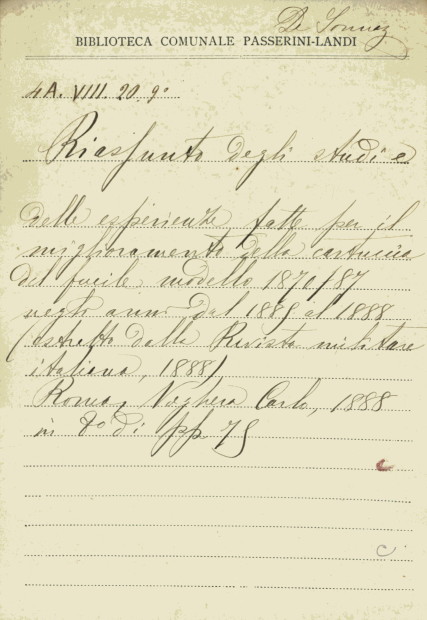 De Sonnaz
BIBLIOTECA COMUNALE PASSERINI-LANDI
4A. VIII. 20. 9º
Riassunto degli studi e
delle esperienze fatte per il
miglioramento della cartuccia
del fucile modello 1870/87
negli anni dal 1885 al 1888
(estratto dalla Rivista militare
italiana, 1888)
Roma, Voghera Carlo, 1888
in 8º di pp 75
C
C